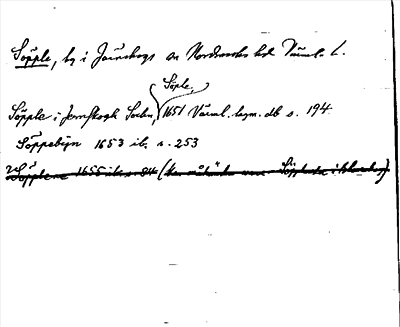 Söpple, by i Järnskogs sn Nordmarks hd Värml. l.
Söple,
Söpple i Jernskogh Sochn, 1651 Värml. lagm. db s. 194
Söppebÿn 1653 ib. s. 253
1655 ib. s. 84